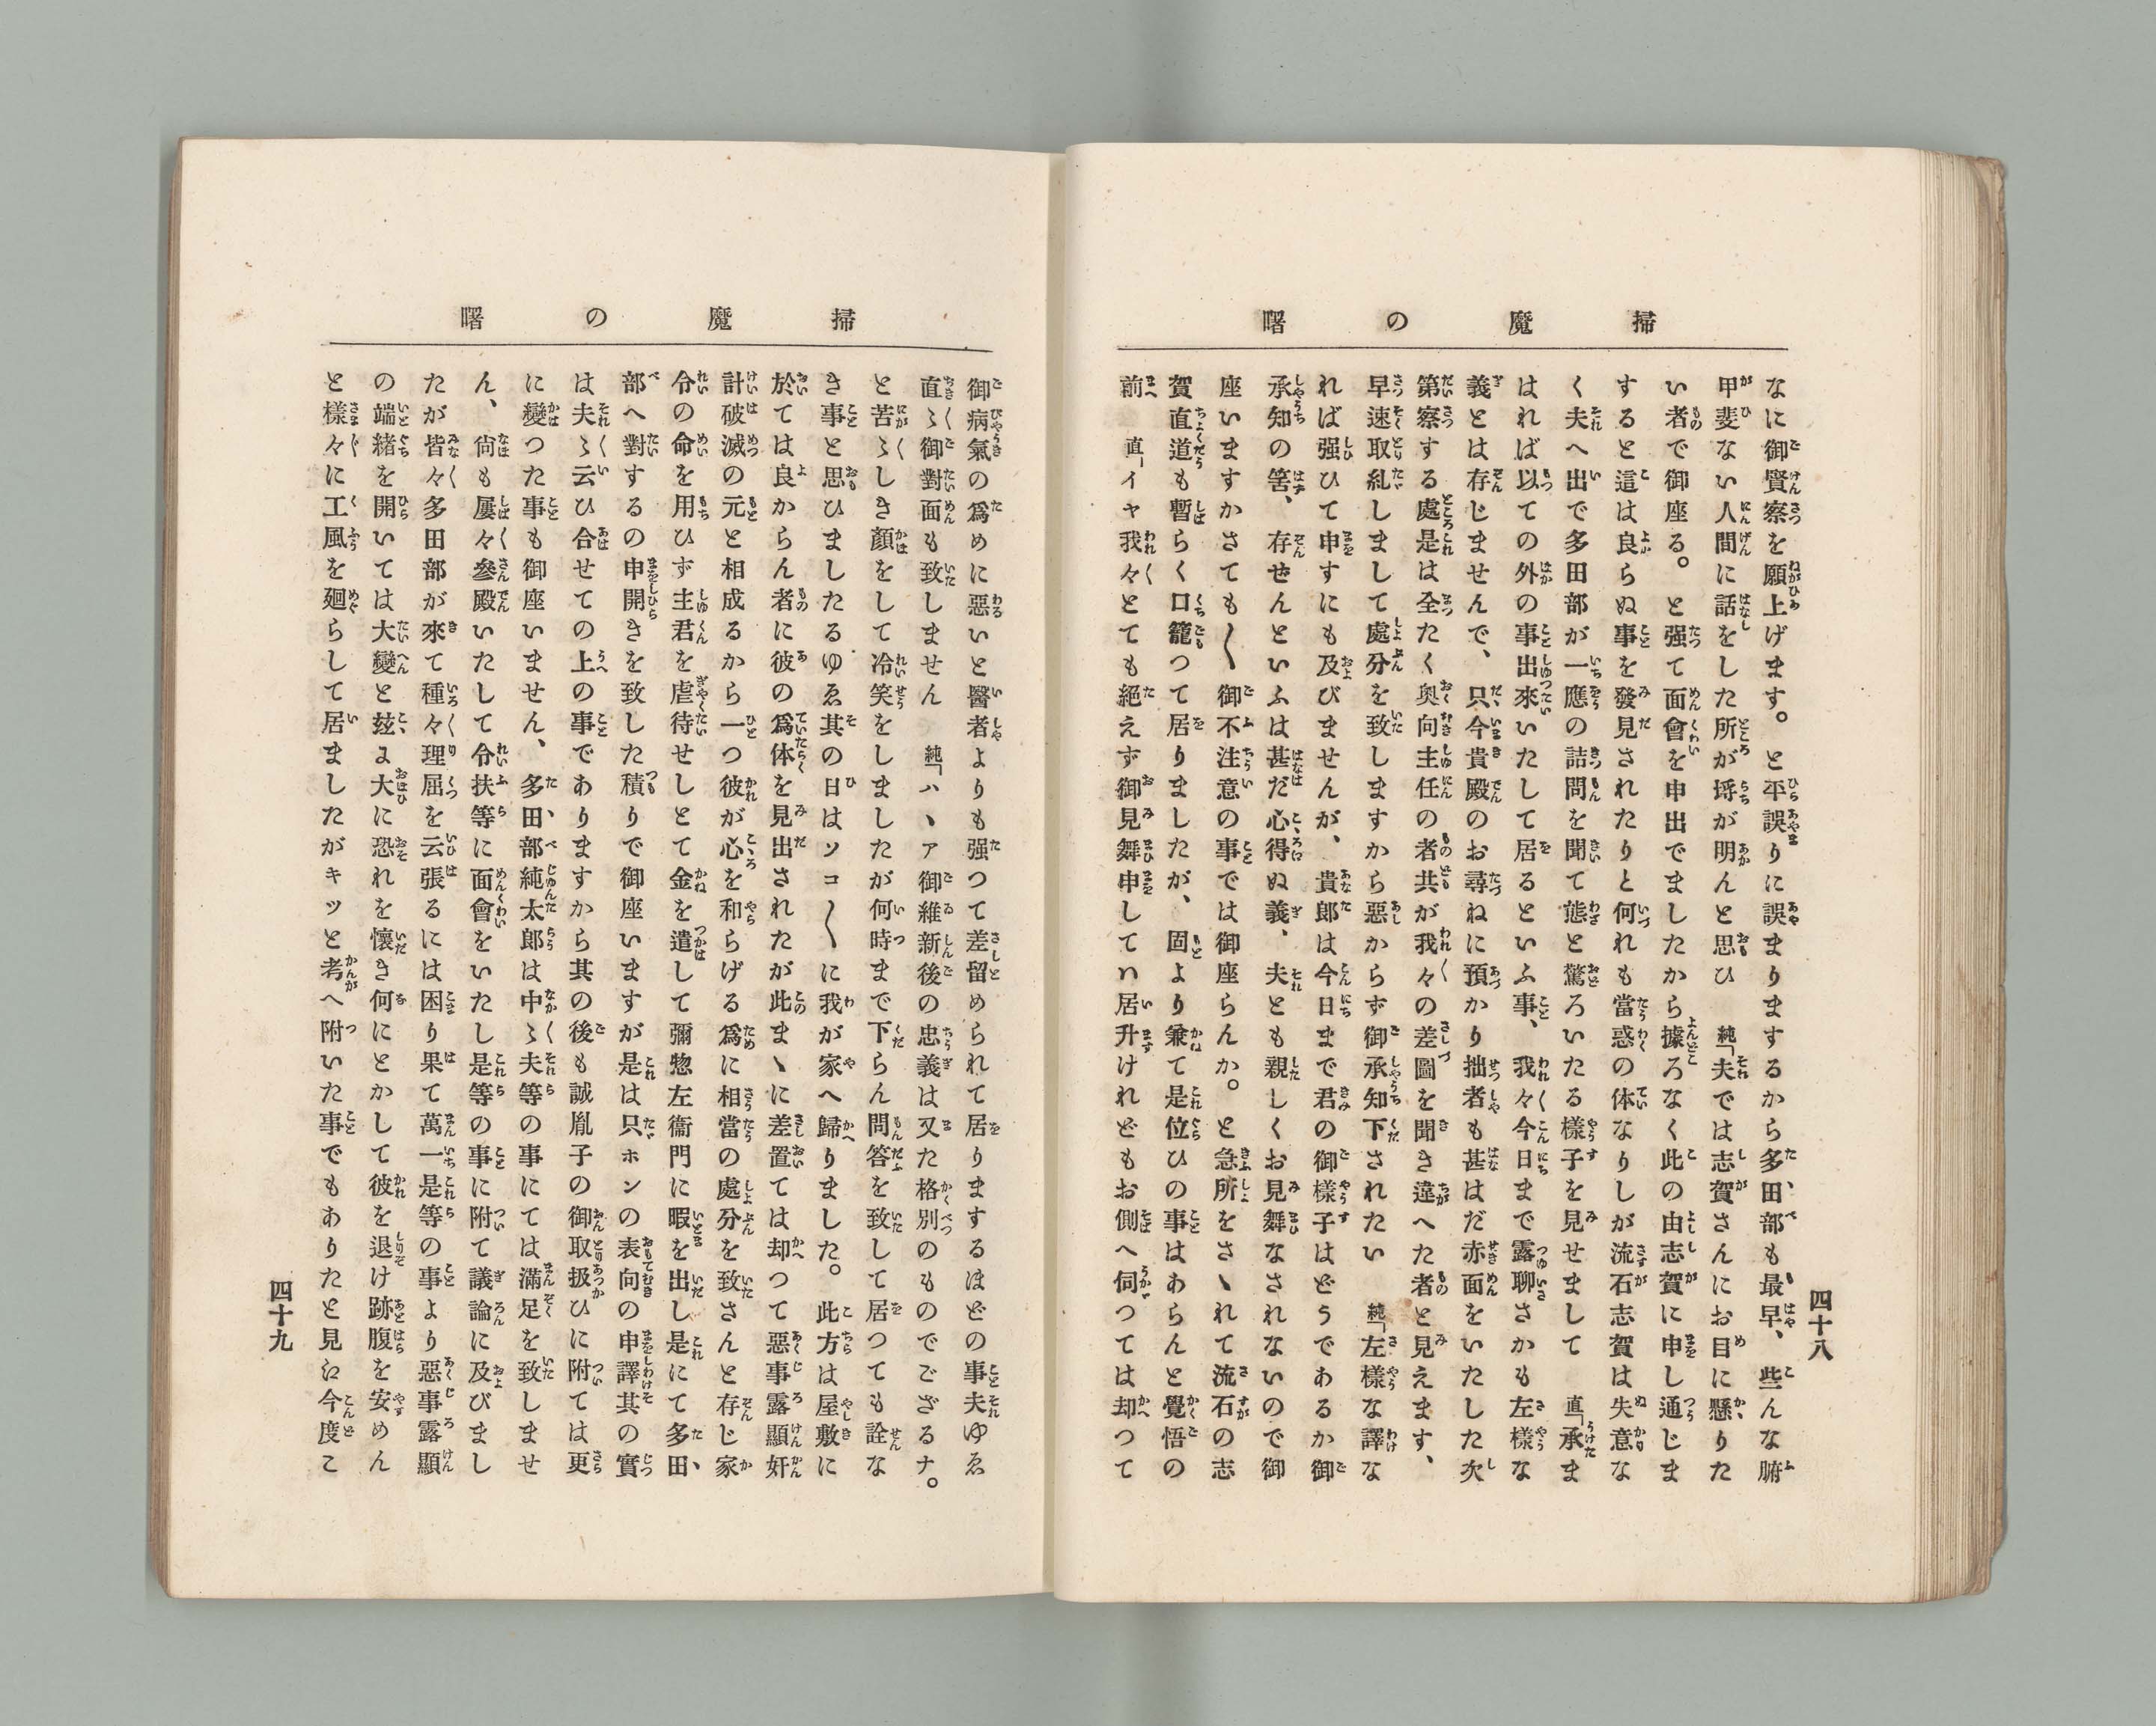 掃魔の曙
なに御賢察を願上げます。と平誤りに誤まりまするから多田部も最早、些んな腑
甲斐ない人間に話をした所が埒が明んと思ひ　純「夫では志賀さんにお目に懸りた
い者で御座る。と强て面會を申出でましたから據ろなく此の由志賀に申し通じま
すると這は良らぬ事を發見されたりと何れも當惑の体なりしが流石志賀は失意な
く夫へ出で多田部が一應の詰問を聞て態と驚ろいたる樣子を見せまして　直「承ま
はれば以ての外の事出來いたして居るといふ事、我々今日まで露聊さかも左樣な
義とは存じませんで、只今貴殿のお尋ねに預かり拙者も甚はだ赤面をいたした次
第察する處是は全たく奥向主任の者共が我々の差圖を聞き違へた者と見えます、
早速取糺しまして處分を致しますから惡からず御承知下されたい　純「左樣な譯な
れば强ひて申すにも及びませんが、貴郎は今日まで君の御樣子はどうであるか御
承知の筈、存ぜんといふは甚だ心得ぬ義、夫とも親しくお見舞なされないので御
座いますかさても〱御不注意の事では御座らんか。と急所をさゝれて流石の志
賀直道も暫らく口籠つて居りましたが、固より兼て是位ひの事はあらんと覺悟の
前　直「イヤ我々とても絕えず御見舞申してハ居升けれどもお側へ伺つては却つて
四十八
掃魔の曙
御病氣の爲めに惡いと醫者よりも强つて差留められて居りまするはどの事夫ゆゑ
直〻御對面も致しません　純「ハヽア御維新後の忠義は又た格別のものでござるナ。
と苦〻しき顏をして冷笑をしましたが何時まで下らん問答を致して居つても詮な
き事と思ひましたるゆゑ其の日はソコ〱に我が家へ歸りました。此方は屋敷に
於ては良からん者に彼の爲体を見出されたが此まゝに差置ては却つて惡事露顯奸
計破滅の元と相成るから一つ彼が心を和らげる爲に相當の處分を致さんと存じ家
令の命を用ひず主君を虐待せしとて金を遣して彌惣左衞門に暇を出し是にて多田
部へ對するの申開きを致した積りで御座いますが是は只ホンの表向の申譯其の實
は夫〻云ひ合せての上の事でありますから其の後も誠胤子の御取扱ひに附ては更
に變つた事も御座いません、多田部純太郎は中〻夫等の事にては滿足を致しませ
ん、尙も屢々參殿いたして令扶等に面會をいたし是等の事に附て議論に及びまし
たが皆々多田部が來て種々理屈を云張るには困り果て萬一是等の事より惡事露顯
の端緖を開いては大變と玆ょ大に恐れを懷き何にとかして彼を退け跡腹を安めん
と樣々に工風を廻らして居ましたがキツと考へ附いた事でもありたと見に今度こ
四十九